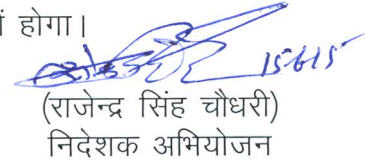 होगा।
15/6/15
(राजेन्द्र सिंह चौधरी)
निदेशक अभियोजन